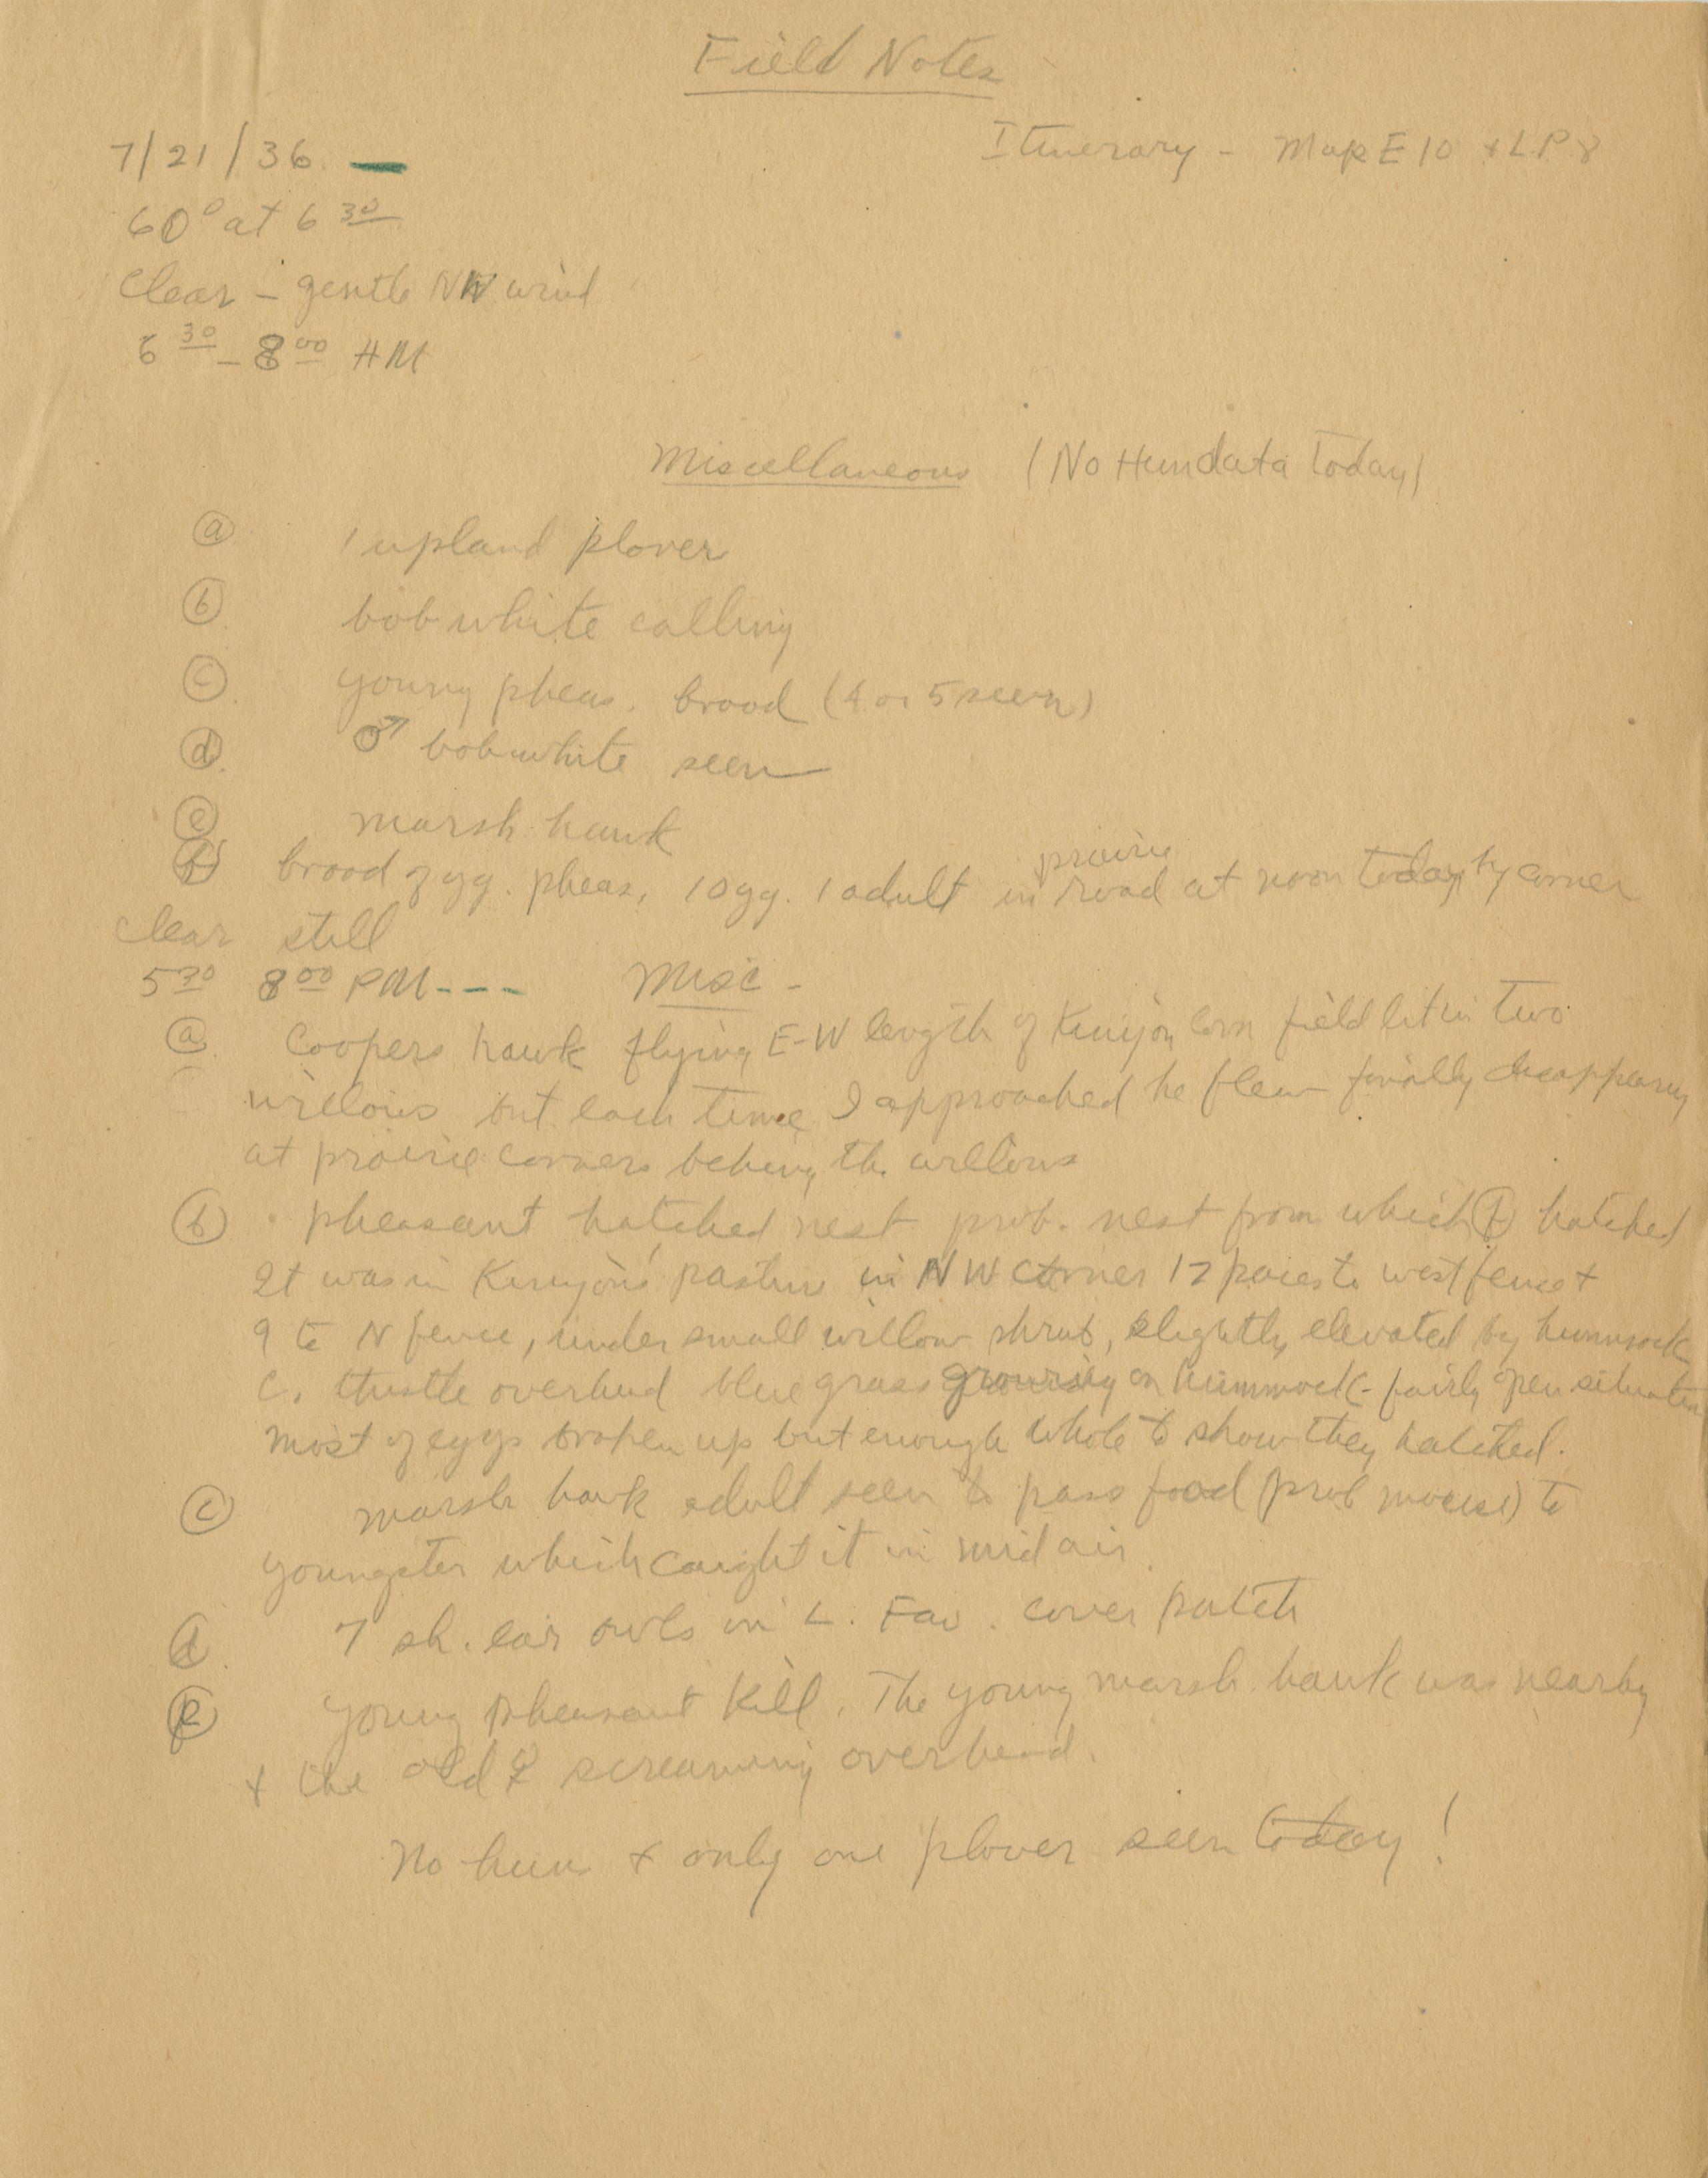 Field Notes
7/21/36. Itinerary - Map E 10 + L.P. 8
60° at 6 30
Clear - gentle NW wind
6 30 - 8 00 AM
Miscellaneous (No Hun data today)
(a) 1 upland plover
(b) bobwhite calling
(c) young pheas. brood (4 or 5 seen)
(d) ♂ bobwhite seen
(e) marsh hawk
prairie
(f) brood of yg. pheas, 10 yg. 1 adult in road at noon today by corner
Clear still
5 30 8 00 PM --- Misc -
(a) Coopers hawk flying E-W length of Kenyon corn field lit in two
willows but each time I approached he flew finally disappearing
at prairie corners behind the willows
(b) pheasant hatched nest prob. nest from which (f) hatched
It was in Kenyon's pasture in NW corner 12 paces to west fence +
9 to N fence, under small willow shrub, slightly elevated by hummock
C. thistle overhead blue grass growing on hummock - fairly open situation
Most of eggs broken up but enough whole to show they hatched.
(c) marsh hawk adult seen to pass food (prob mouse) to
youngster which caught it in mid air.
(d) 7 sh. ear owls in L. Fav. cover patch
(e) young pheasant kill. The young marsh hawk was nearby
+ the old ♀ screaming overhead.
No huns + only one plover seen today!